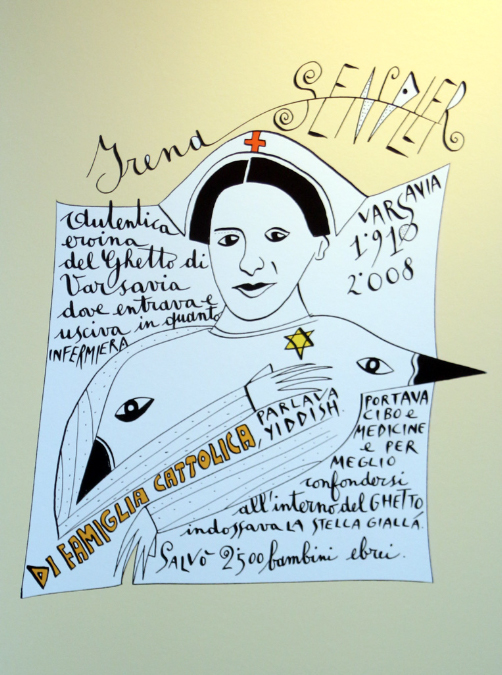 Irena SENDLER
VARSAVIA
1910
2008
Autentica
eroina
del Ghetto di
Varsavia
dove entrava e
usciva in quanto
INFERMIERA
DI FAMIGLIA CATTOLICA
PARLAVA
YIDDISH.
PORTAVA
CIBO e
MEDICINE
e PER
MEGLIO
confondersi
all'interno del GHETTO
indossava LA STELLA GIALLA.
SALVÒ 2500 bambini ebrei.